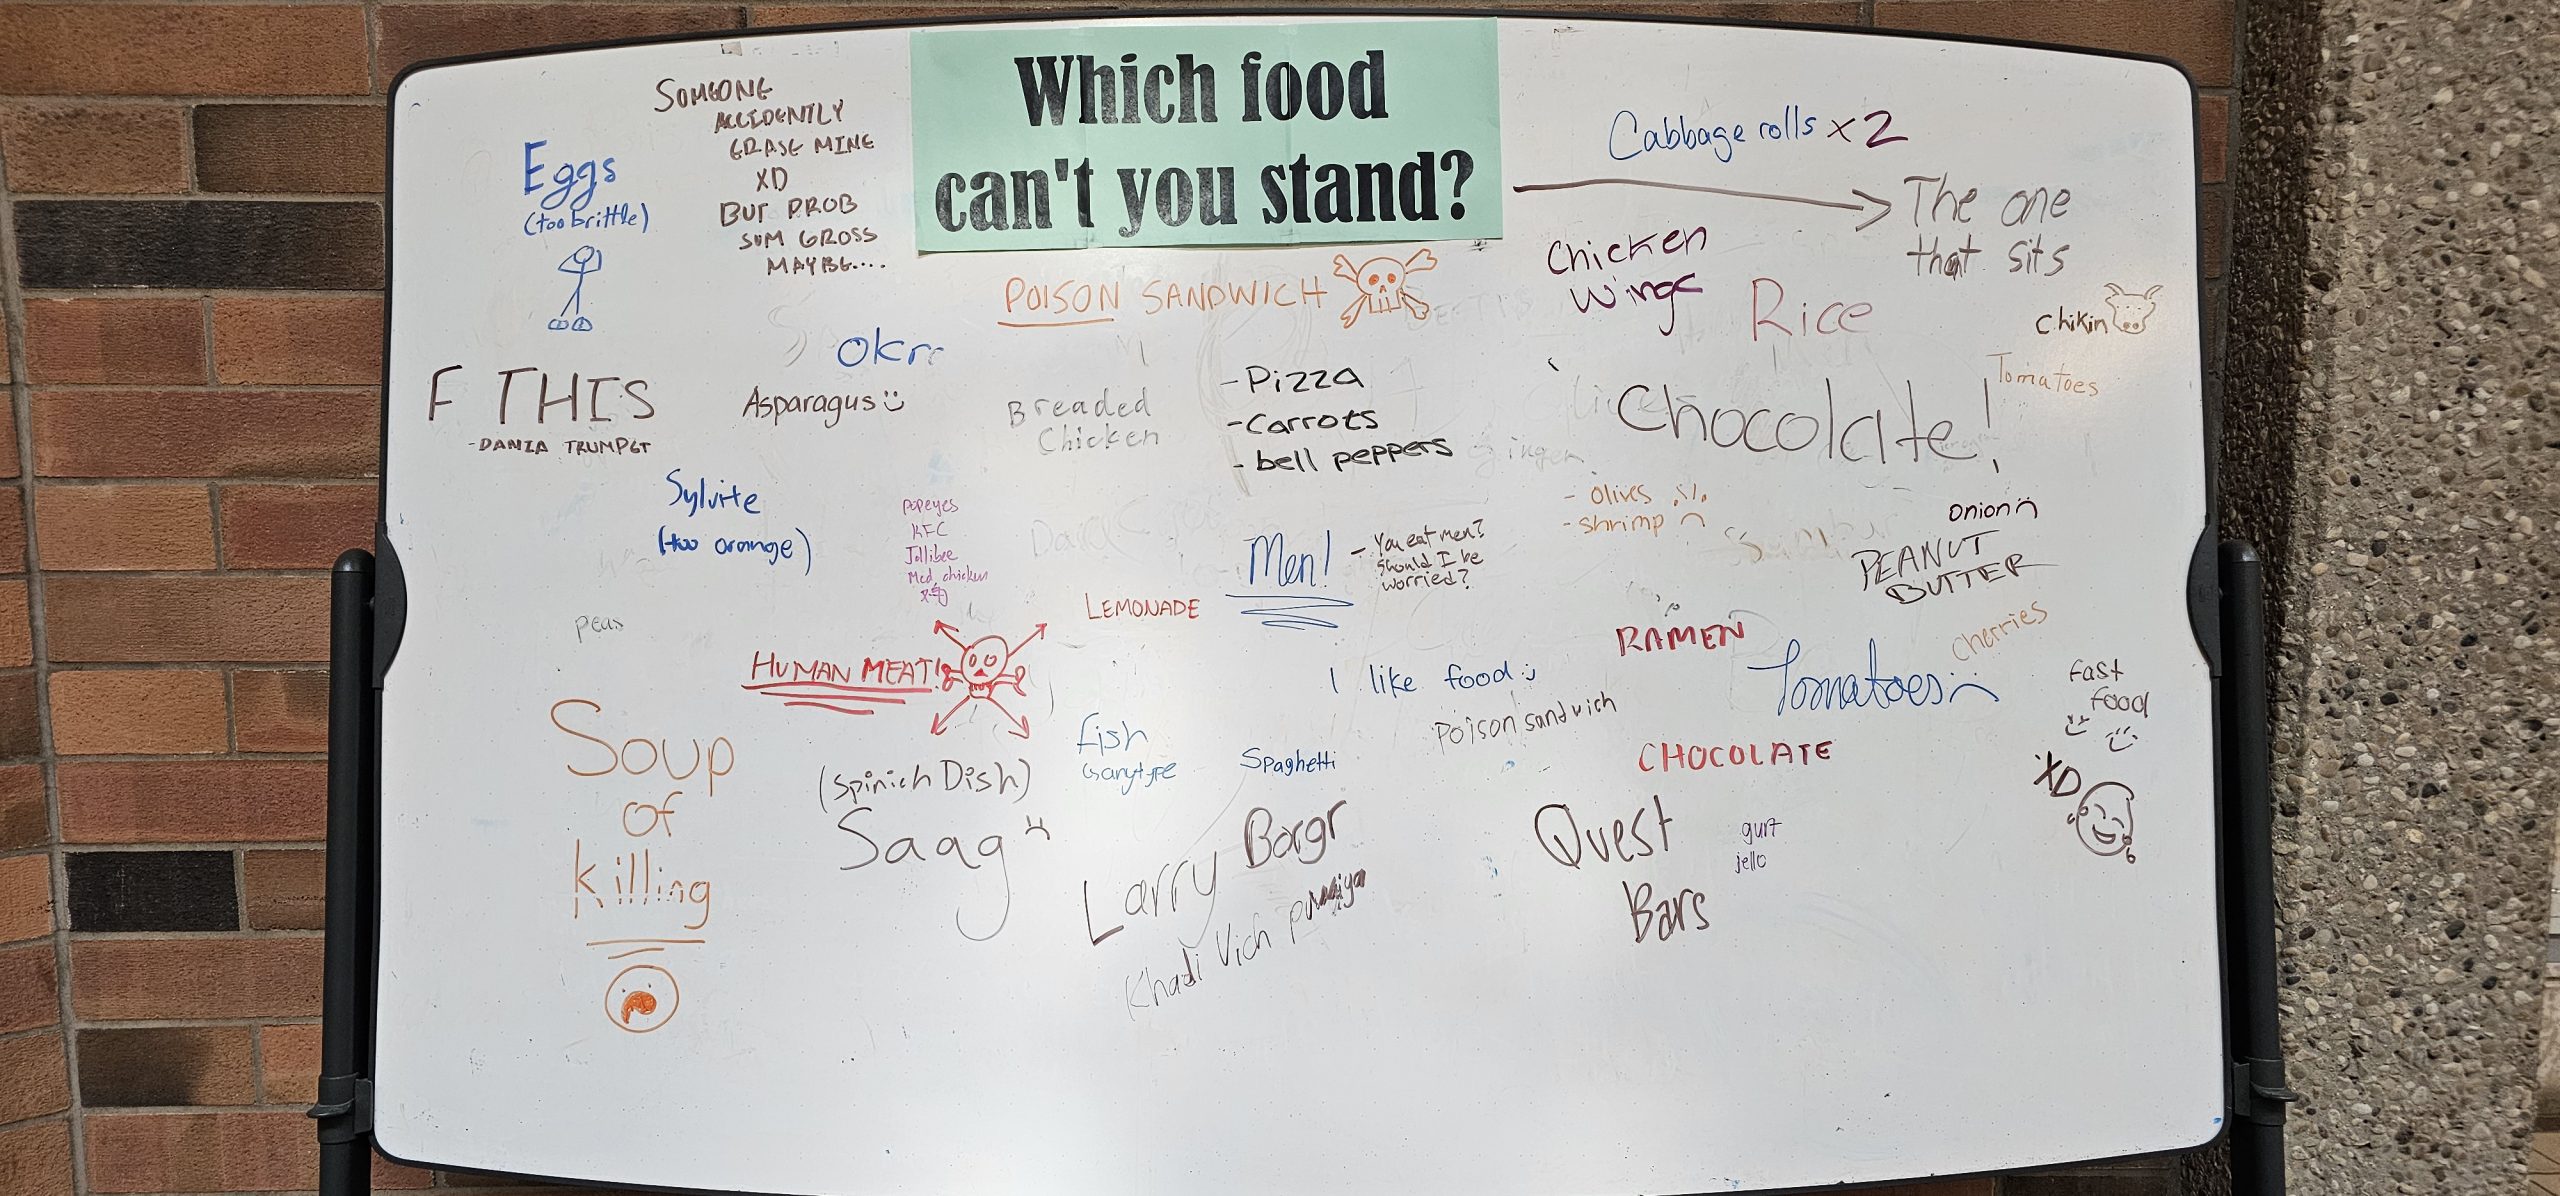 Which food
can't you stand?
SOMEONE
ACCIDENTLY
ERASE MINE
XD
BUT PROB
SUM GROSS
MAYBE....
Eggs
(too brittle)
Cabbage rolls x2
The one
that sits
Chicken
wings
Rice
chikin
POISON SANDWICH
okra
F THIS
-DANIA TRUMPET
Asparagus :)
Breaded
Chicken
-Pizza
-carrots
- bell peppers
ginger
Chocolate!
Tomatoes
Sylvite
(too orange)
Popeyes
KFC
Jollibee
Med chicken
- olives
- shrimp
onion
PEANUT
BUTTER
Men!
- You eat men?
Should I be
worried?
peas
LEMONADE
HUMAN MEAT!
RAMEN
Tomatoes
cherries
I like food :)
Poison sandwich
fast
food
Soup
of
killing
(Spinich Dish)
Saag
fish
Spaghetti
CHOCOLATE
XD
Larry
Borgr
Khadi Vich
Quest
Bars
gurt
jello